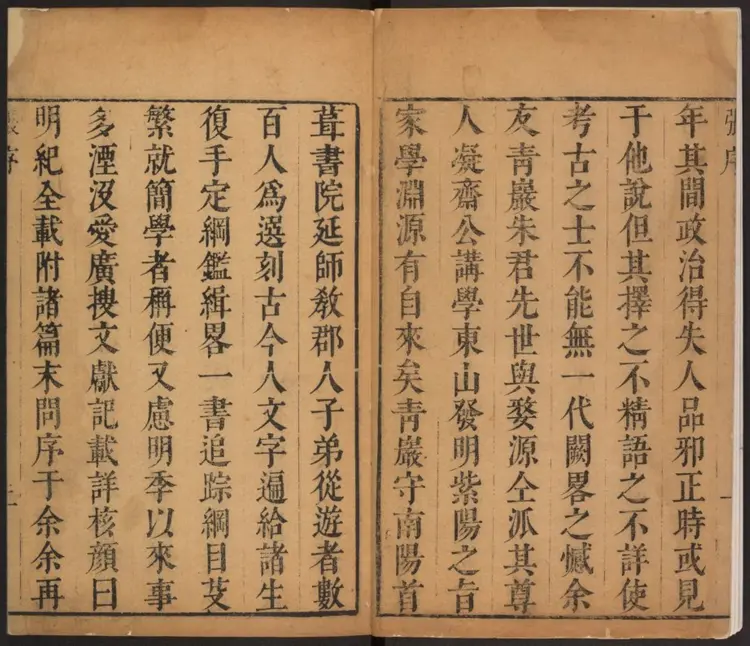 張序
一
年其間政治得失人品邪正時或見
于他說但其擇之不精語之不詳使
考古之士不能無一代闕畧之憾余
友青巖朱君先世與婺源仝泒其尊
人凝齋公講學東山發明紫陽之旨
家學淵源有自來矣青巖守南陽首
葺書院延師敎郡人子弟從遊者數
百人爲選刻古今人文字遍給諸生
復手定綱鑑緝畧一書追踪綱目芟
繁就簡學者稱便又慮明季以來事
多湮沒愛廣搜文獻記載詳核顏曰
明紀全載附諸篇末問序于余余再